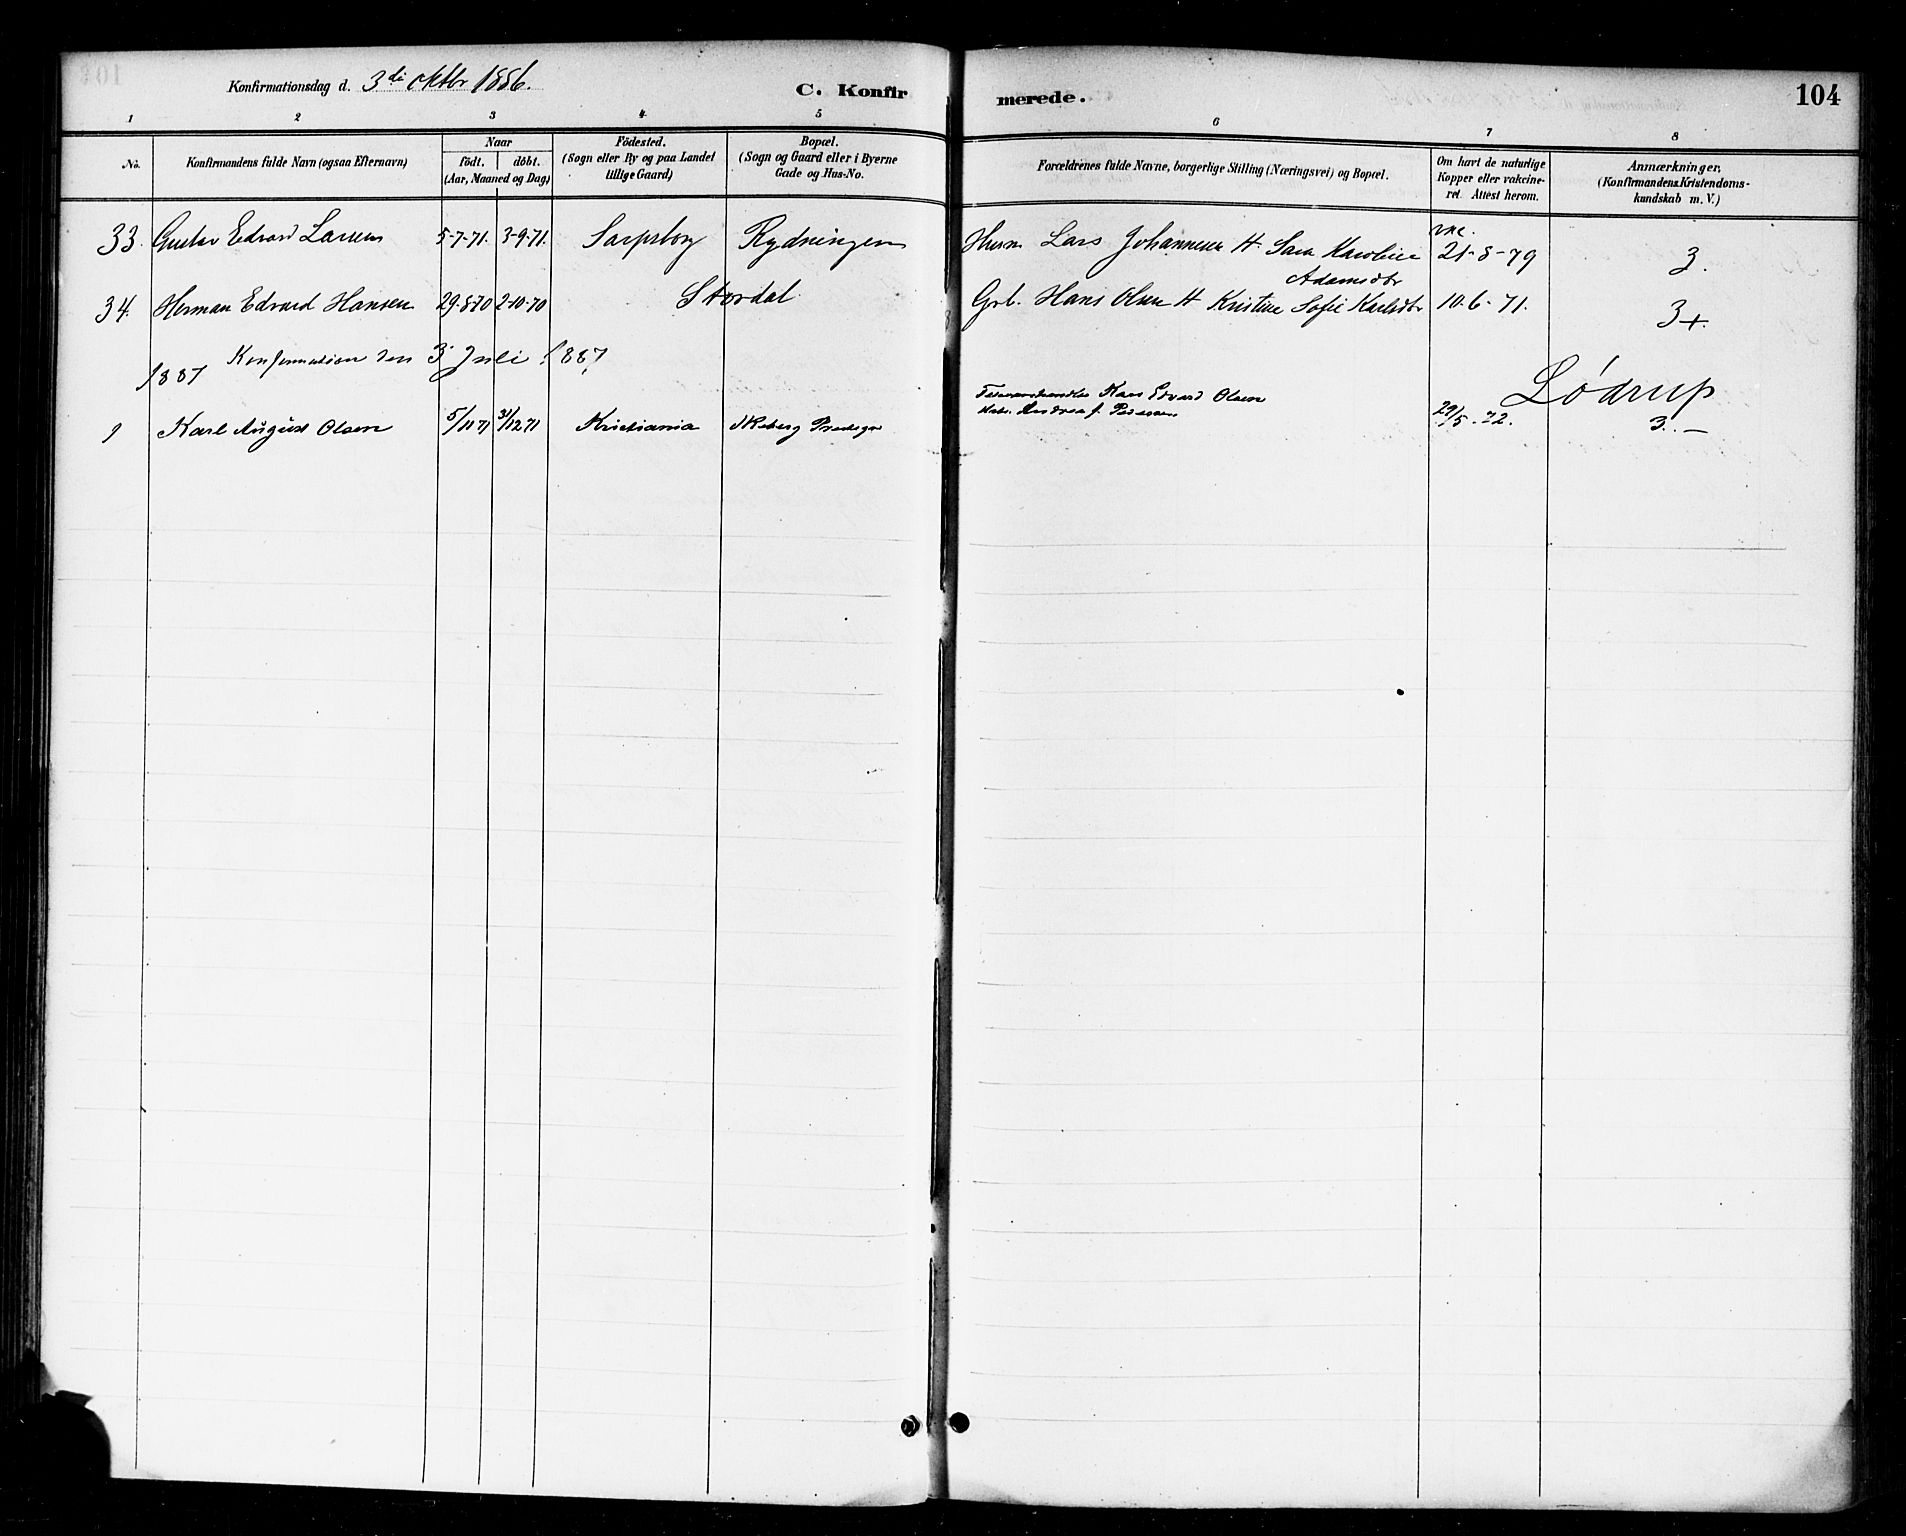 Konfirmationsdag d. 3di Oktbr 1886.
C. Konfirmerede.
104
1 2 3 4 5 6 7 8
No.
Konfirmandens fulde Navn (ogsaa Efternavn)
Naar
födt. döbt.
(Aar, Maaned og Dag)
Födested.
(Sogn eller By og paa Landet
tillige Gaard)
Bopæl.
(Sogn og Gaard eller i Byerne
Gade og Hus-No.
Forældrenes fulde Navne, borgerlige Stilling (Næringsvei) og Bopæl.
Om havt de naturlige
Kopper eller vakcine-
ret. Attest herom.
Anmærkninger,
(Konfirmandens Kristendoms-
kundskab m. V.)
33. Gustav Edvard Larsen 5-7-71. 3-9-71. Sarpsborg Rydningen Husm Lars Johannesen H. Sara Karoline Adamsdtr vac. 21-8-79 3.
34. Herman Edvard Hansen 29-8-70 2-10-70 Stordal Grb. Hans Olsen H Kristine Sofie Karlsdtr 10-6-71. 3+.
1887 Konfirmation den 3 Juli 1887
Lödrup
1 Karl August Olsen 5/11 71 31/12 71 Kristiania Skeberg Prestegr Hans Edvard Olsen
Andrea f. Pedersen 29/5-72. 3.-